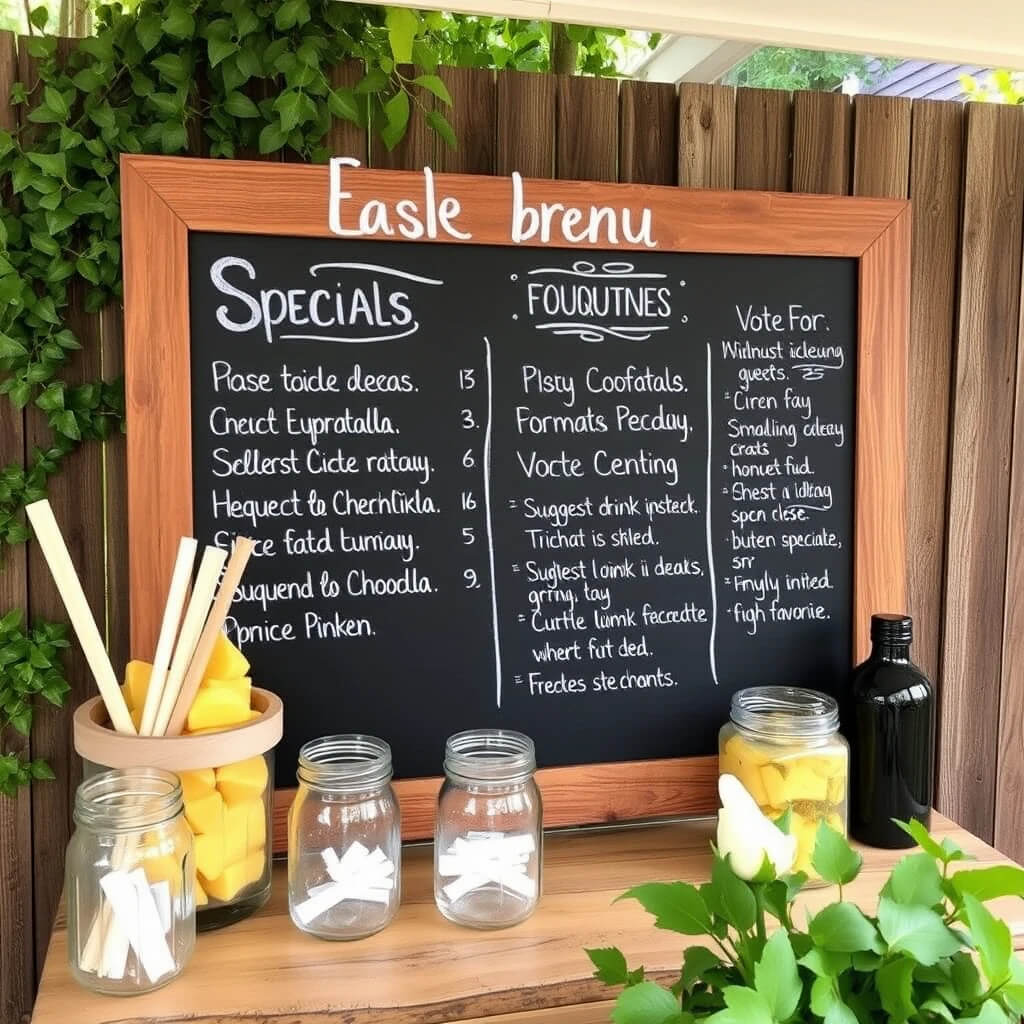 Easle brenu
SPECIALS
Pase toicle deeas. 13
Cnect Eupratalla. 3.
Sellerst Cicte ratauy. 6
Hequect to Cherntikla. 16
fatd tumiay. 5
to Choodla. 9.
Pinken.
FOUQUTNES
Pisty Coofatals.
Formats Pecday.
Vocte Centing
= Suggest drink
Trichat is skled.
= Suglest loink ii deaks,
tay
= Curtle lumk
whert fut ded.
= Fredes stechants.
Vote For.
Wirlnust
gueets.
Ciren fay
Smalling
crats
honuet fud.
Shest a
spcn clese.
buten speciale,
srr
intted
figh favorite.